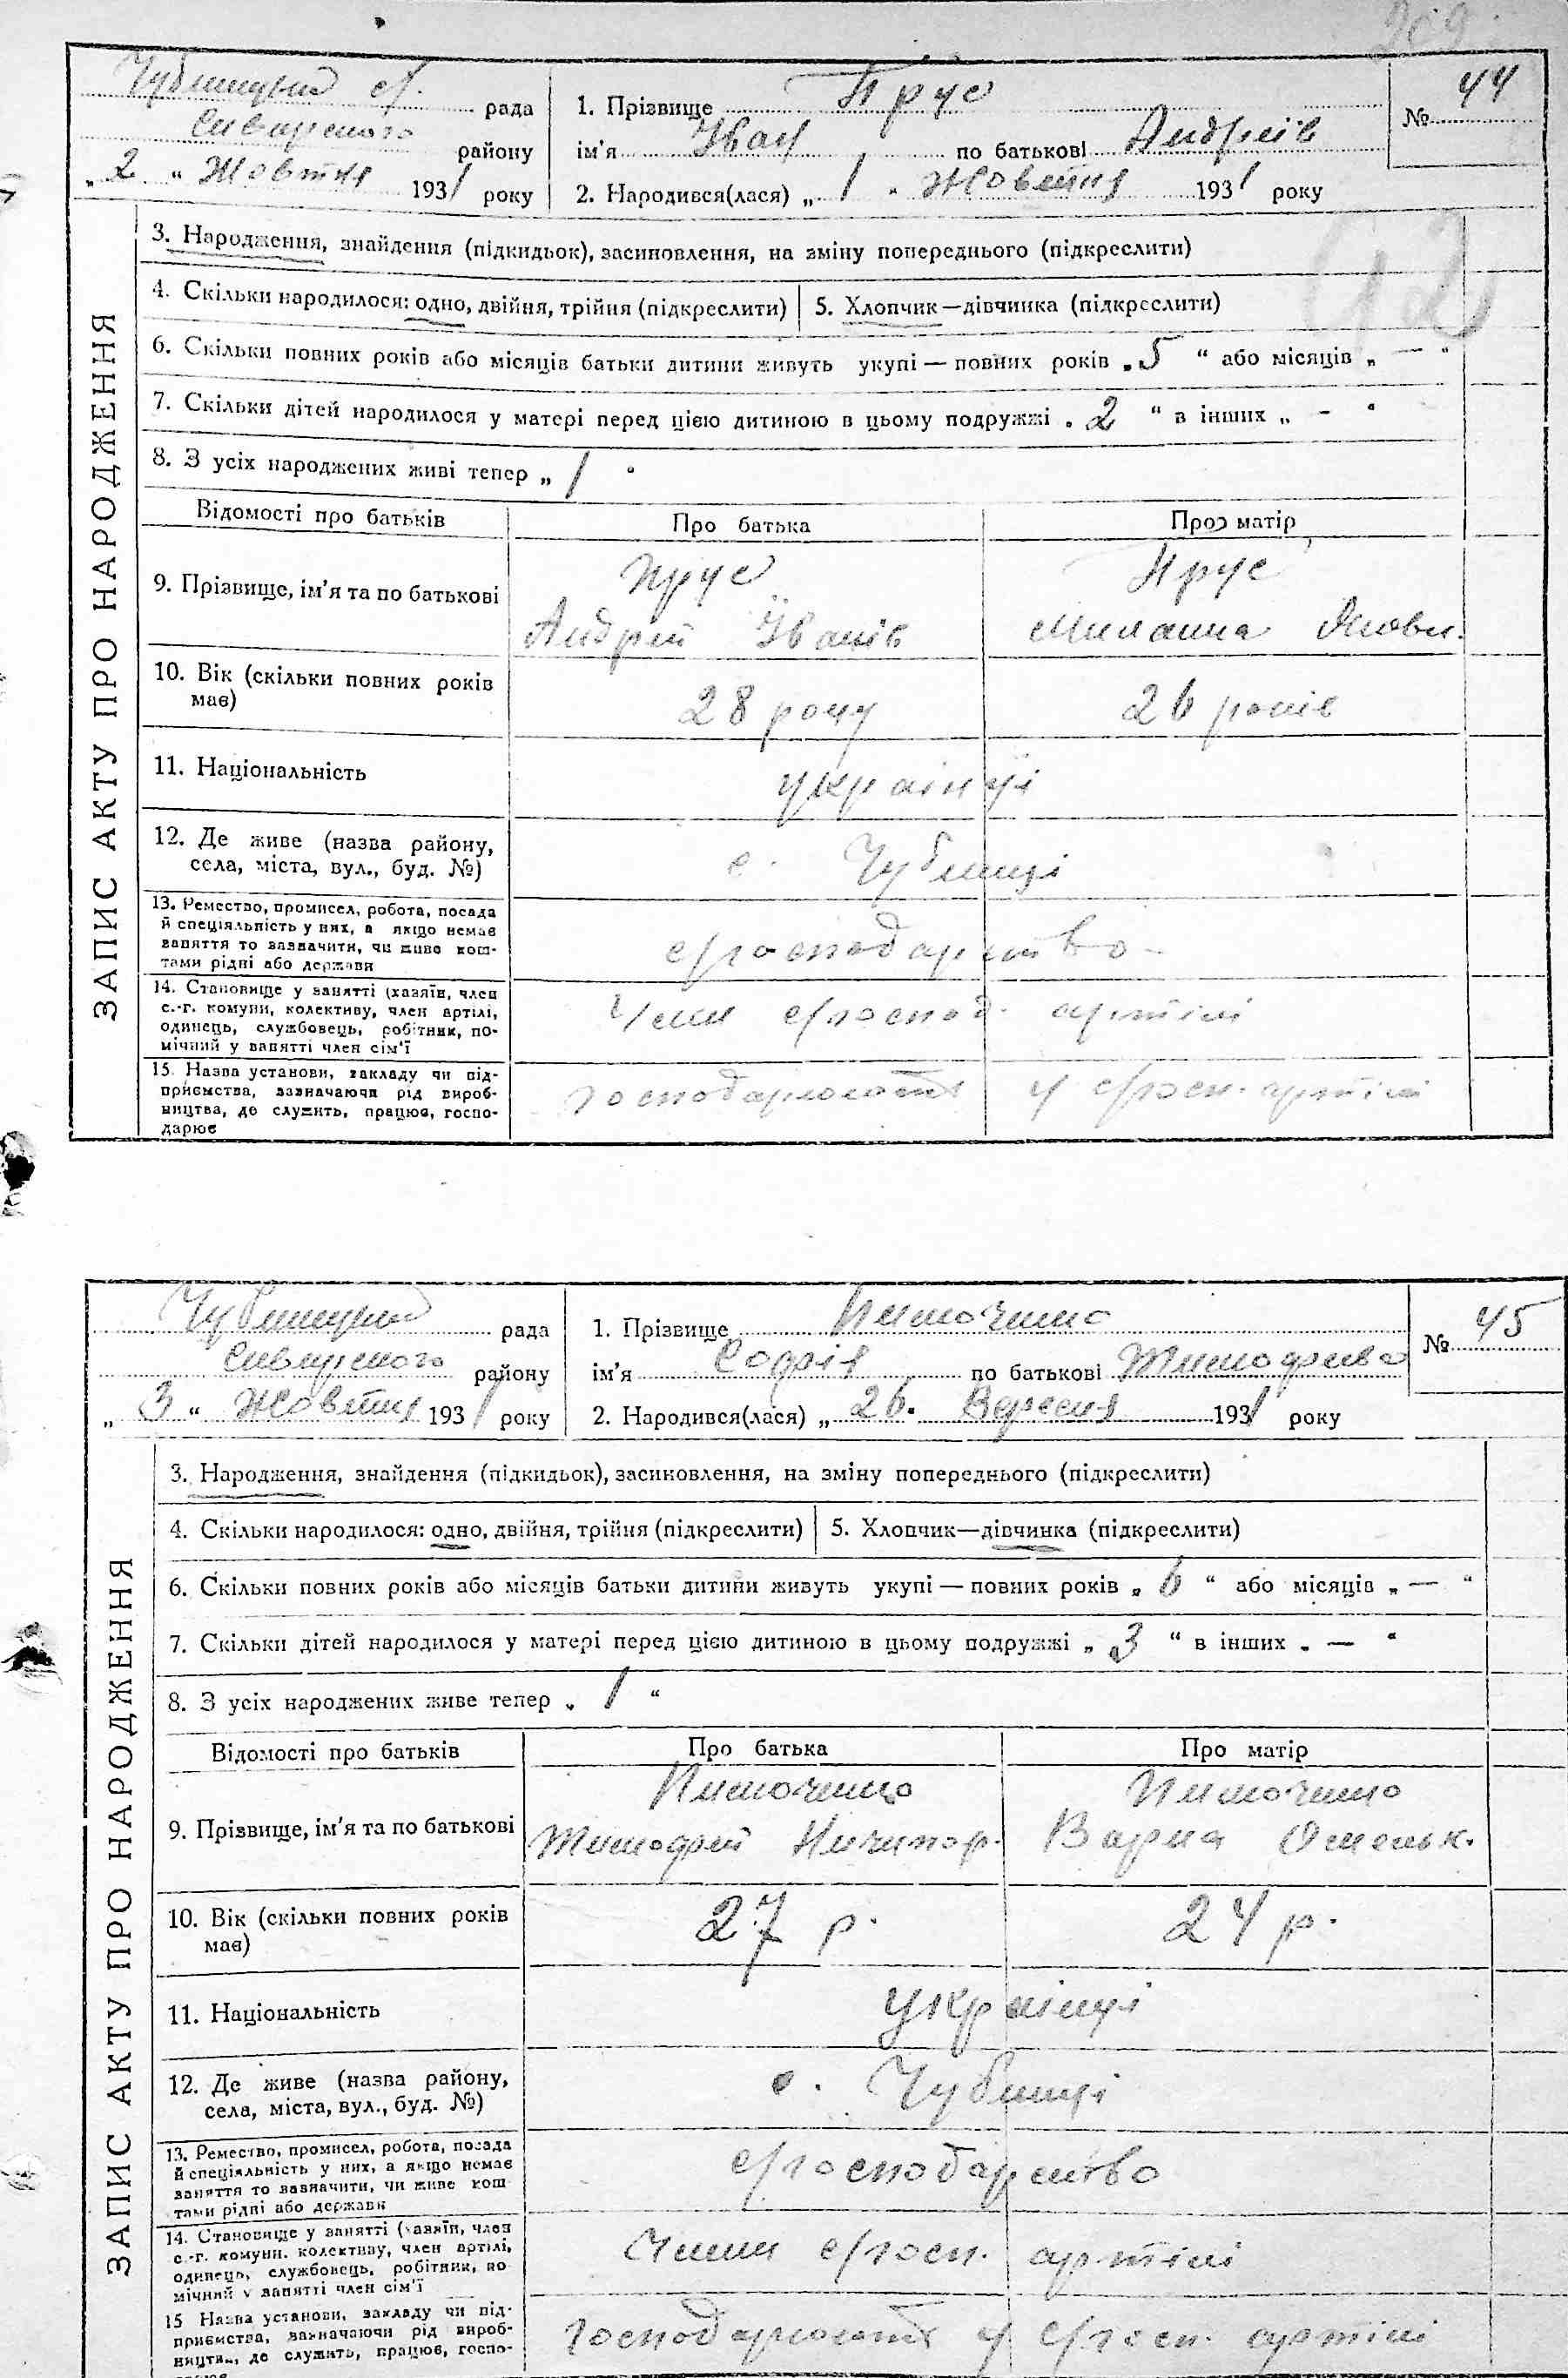 209.
Чубинецька с/.
рада
Сквирського
району
„ 2 “ Жовтня 1931 року
1. Прізвище Прус
ім’я Іван по батькові Андріїв
№ 44
2. Народився(лася) „ 1 “ Жовтня 1931 року
ЗАПИС АКТУ ПРО НАРОДЖЕННЯ
3. Народження, знайдення (підкидьок), засиновлення, на зміну попереднього (підкреслити)
4. Скільки народилося: одно, двійня, трійня (підкреслити) 5. Хлопчик—дівчинка (підкреслити)
6. Скільки повних років або місяців батьки дитини живуть укупі — повних років „ 5 “ або місяців „ — “
7. Скільки дітей народилося у матері перед цією дитиною в цьому подружжі „ 2 “ в інших „ - “
8. З усіх народжених живі тепер „ 1 “
Відомості про батьків Про батька Про матір
9. Прізвище, ім’я та по батькові
Прус
Андрій Іванів
Прус
Миланка Якови.
10. Вік (скільки повних років має)
28 року
26 років
11. Національність
українці
12. Де живе (назва району,
села, міста, вул., буд. №)
с. Чубинці
13. Ремество, промисел, робота, посада
й спеціяльність у них, а якщо немає
заняття то зазначити, чи живе кош-
тами рідні або держави
с/господарство
14. Становище у занятті (хазяїн, член
с.-г. комуни, колективу, член артілі,
одинець, службовець, робітник, по-
мічний у занятті член сім’ї
Член с/господ. артілі
15. Назва установи, закладу чи під-
приємства, зазначаючи рід вироб-
ництва, де служить, працює, госпо-
дарює
господарюють у с/госп. артілі
Чубинецька
рада
Сквирського
району
„ 3 “ Жовтня 1931 року
1. Прізвище
ім’я Софія по батькові Тимофіева
№ 45
2. Народився(лася) „ 26. Вересня 1931 року
ЗАПИС АКТУ ПРО НАРОДЖЕННЯ
3. Народження, знайдення (підкидьок), засиновлення, на зміну попереднього (підкреслити)
4. Скільки народилося: одно, двійня, трійня (підкреслити) 5. Хлопчик—дівчинка (підкреслити)
6. Скільки повних років або місяців батьки дитини живуть укупі — повних років „ 6 “ або місяців „ — “
7. Скільки дітей народилося у матері перед цією дитиною в цьому подружжі „ 3 “ в інших „ — “
8. З усіх народжених живе тепер „ 1 “
Відомості про батьків Про батька Про матір
9. Прізвище, ім’я та по батькові
Тимофій Ничипор.
Варка Омельк.
10. Вік (скільки повних років
має)
27 р.
24 р.
11. Національність
українці
12. Де живе (назва району,
села, міста, вул., буд. №)
с. Чубинці
13. Ремество, промисел, робота, посада
й спеціяльність у них, а якщо немає
заняття то зазначити, чи живе кош-
тами рідні або держави
с/господарство
14. Становище у занятті (хазяїн, член
с.-г. комуни, колективу, член артілі,
одинець, службовець, робітник, по-
мічний у занятті член сім’ї
Члени с/госп. артілі
15 Назва установи, закладу чи під-
приємства, зазначаючи рід вироб-
ництва, де служить, працює, госпо-
господарюють у с/госп. артілі